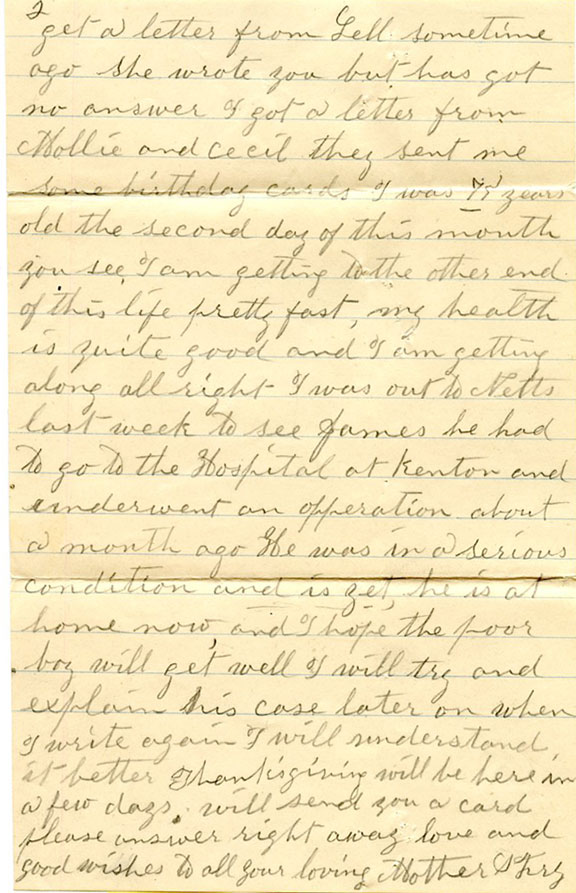 2
get a letter from Lell sometime
ago she wrote you but has got
no answer I got a letter from
Mollie and cecil they sent me
some birthday cards I was years
old the second day of this month
you see, I am getting to the other end
of this life pretty fast, my health
is quite good and I am getting
along all right I was out to Netts
last week to see James he had
to go to the Hospital at Kenton and
underwent an opperation about
a month ago He was in a serious
condition and is yet, he is at
home now, and I hope the poor
boy will get well I will try and
explain his case later on when
I write again I will understand
it better Thanksgiving will be here in
a few days. will send you a card
please answer right away love and
good wishes to all your loving Mother